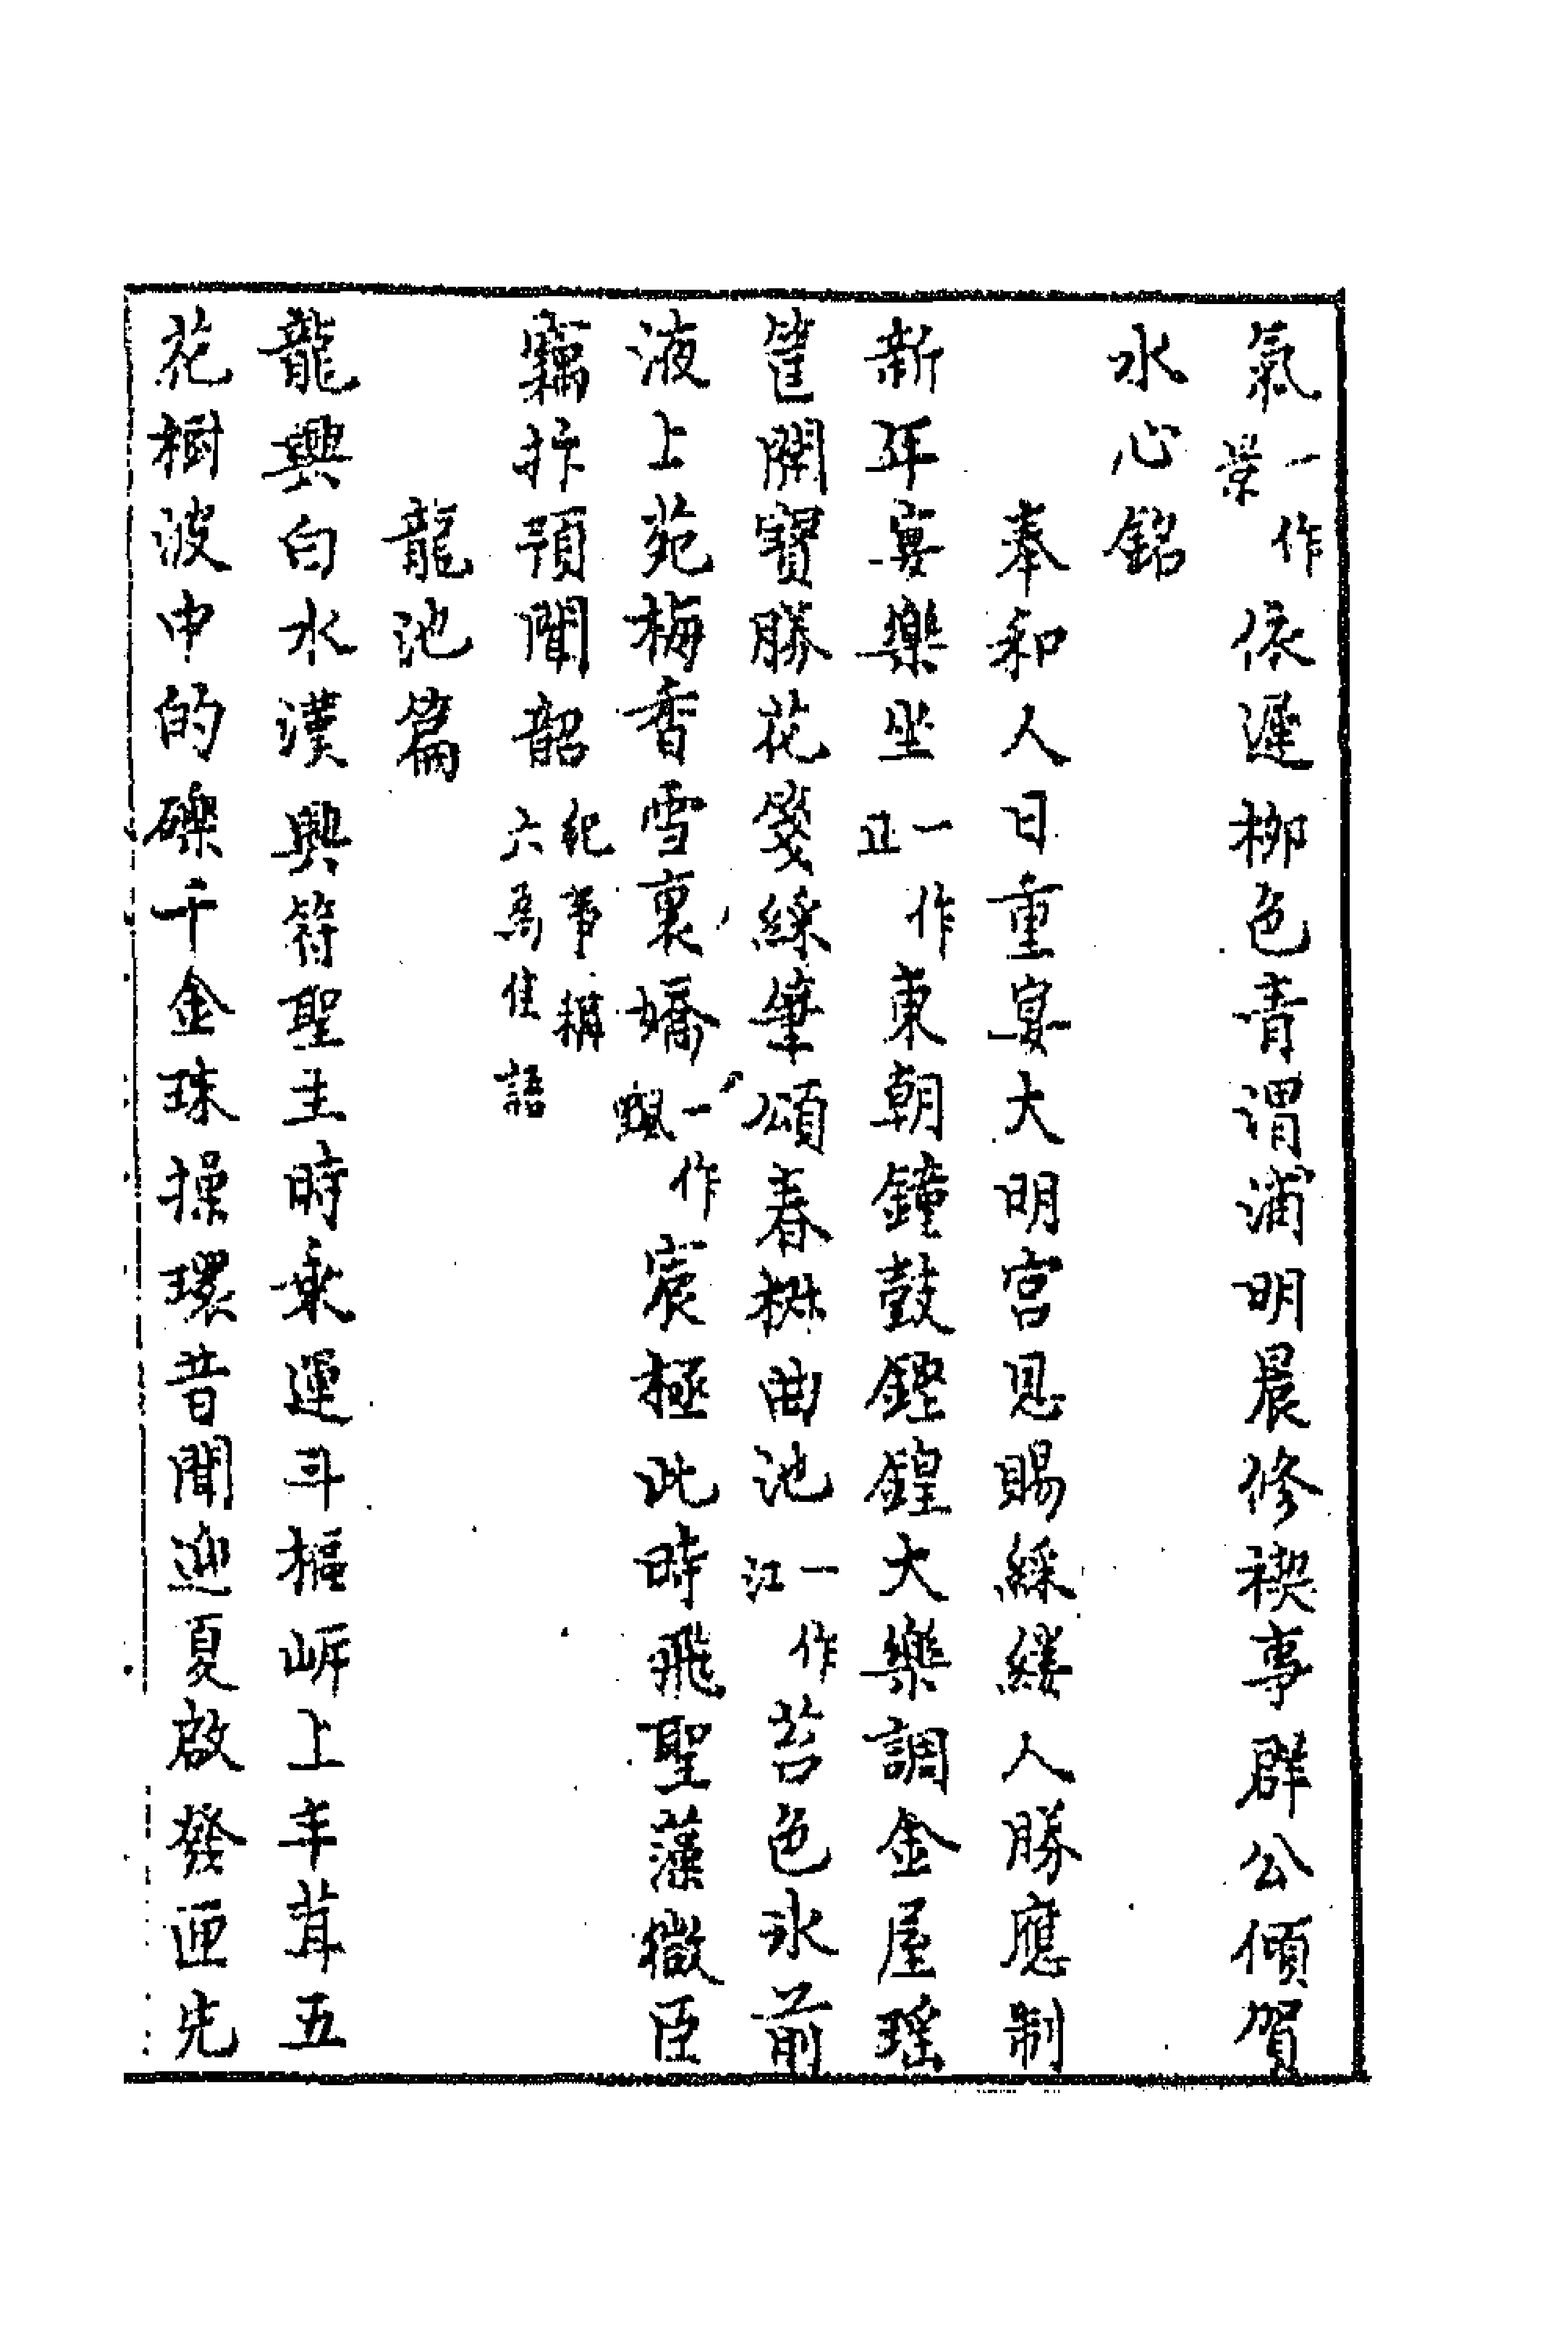 氣一作景依遲柳色青渭浦明晨修禊事群公傾賀
水心銘
奉和人日重宴大明宮恩賜綵縷人勝應制
新年宴樂坐一作正東朝鐘鼓鏗鍠大樂調金屋瑤
筐開寶勝花箋綵筆頌春椒曲池一作江苔色氷前
液上苑梅香雪裏嬌一作飄宸極此時飛聖藻微臣
竊抃預聞韶紀事稱六爲佳語
龍池篇
龍興白水漢興符聖主時乘運斗樞岍上丰茸五
花樹波中的礫千金珠操環昔聞迎夏啟發匣先